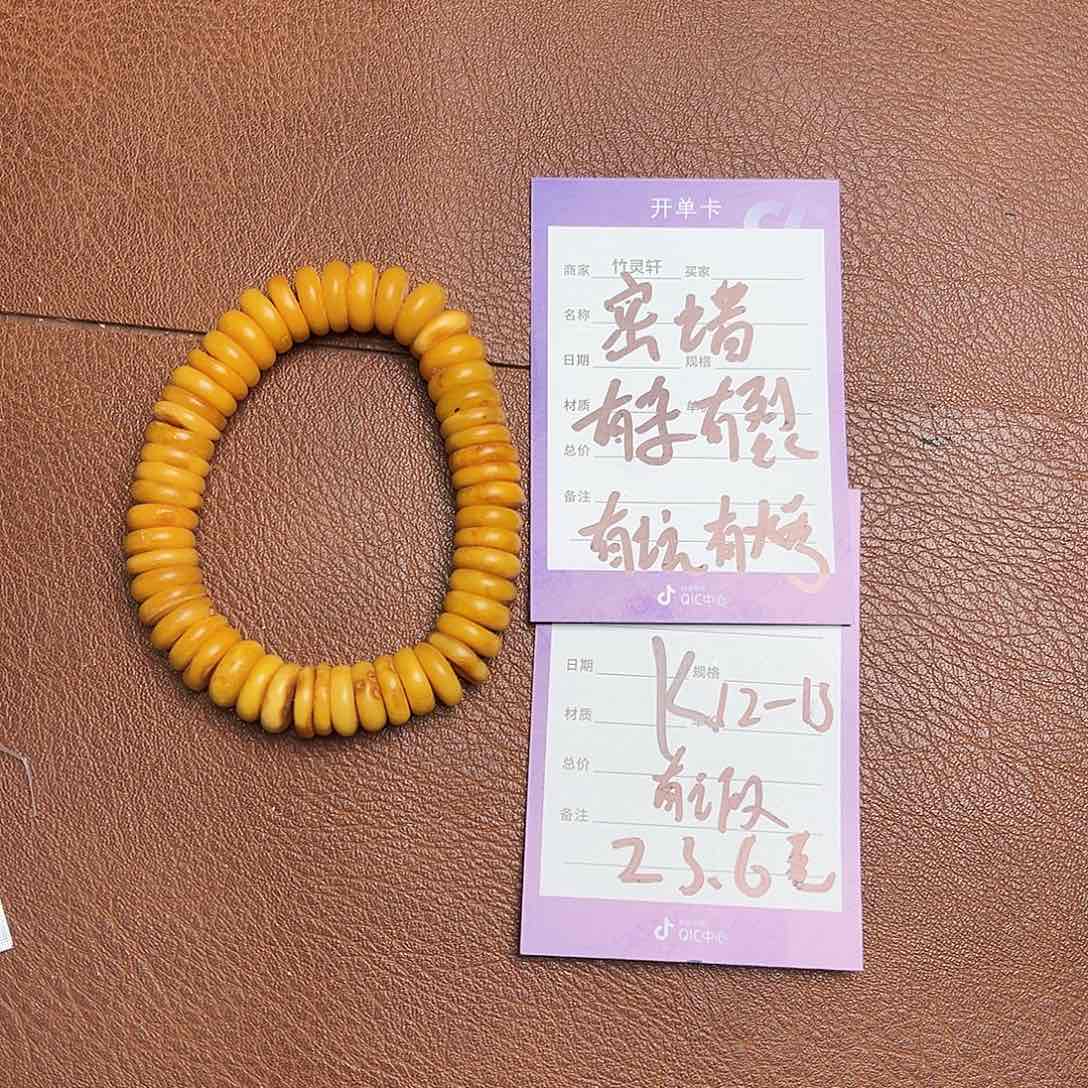 开单卡
商家 竹灵轩 买家
名称 密堵
日期 规格
材质 有矛有裂
总价
备注
有坑有烤
QIC中心
日期 规格
K.12-13
材质
总价
备注
23.6克
QIC中心